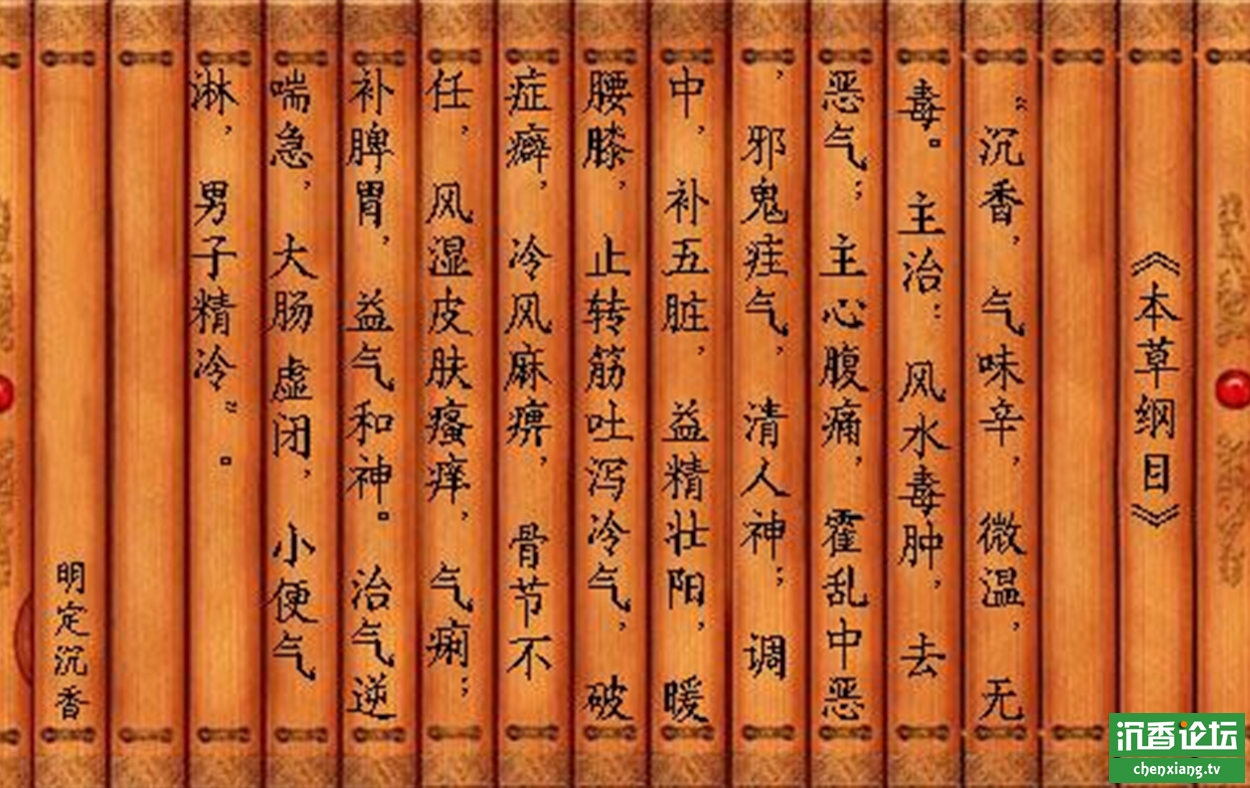 《本草纲目》
“沉香，气味辛，微温，无
毒。主治：风水毒肿，去
恶气；主心腹痛，霍乱中恶
，邪鬼疰气，清人神；调
中，补五脏，益精壮阳，暖
腰膝，止转筋吐泻冷气，破
症癖，冷风麻痹，骨节不
任，风湿皮肤瘙痒，气痢；
补脾胃，益气和神。治气逆
喘急，大肠虚闭，小便气
淋，男子精冷”。
明定沉香
沉香论坛
chenxiang.tv